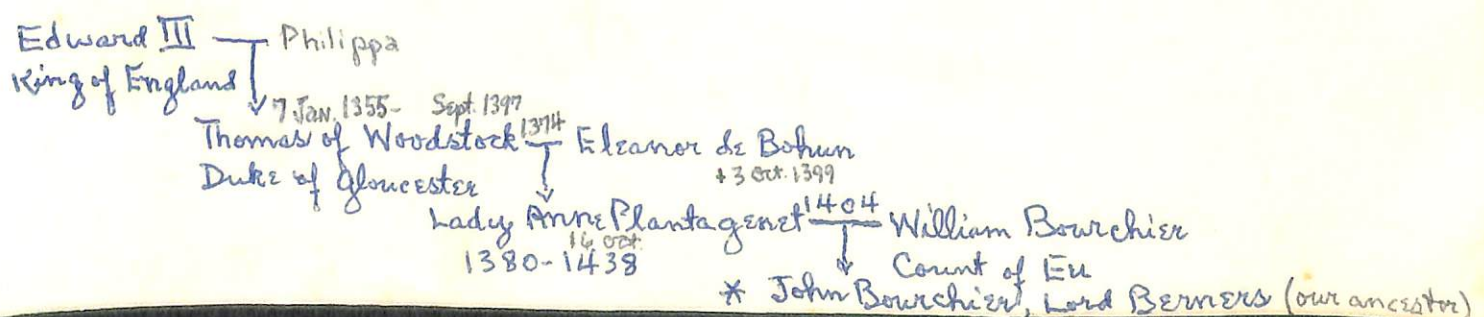 Edward III — Philippa
King of England
7 Jan. 1355- Sept. 1397
Thomas of Woodstock 1374 Eleanor de Bohun
Duke of Gloucester ✝3 Oct. 1399
Lady Anne Plantagenet 1404 William Bourchier
16 Oct.
1380-1438 Count of Eu
* John Bourchier, Lord Berners (our ancestor)